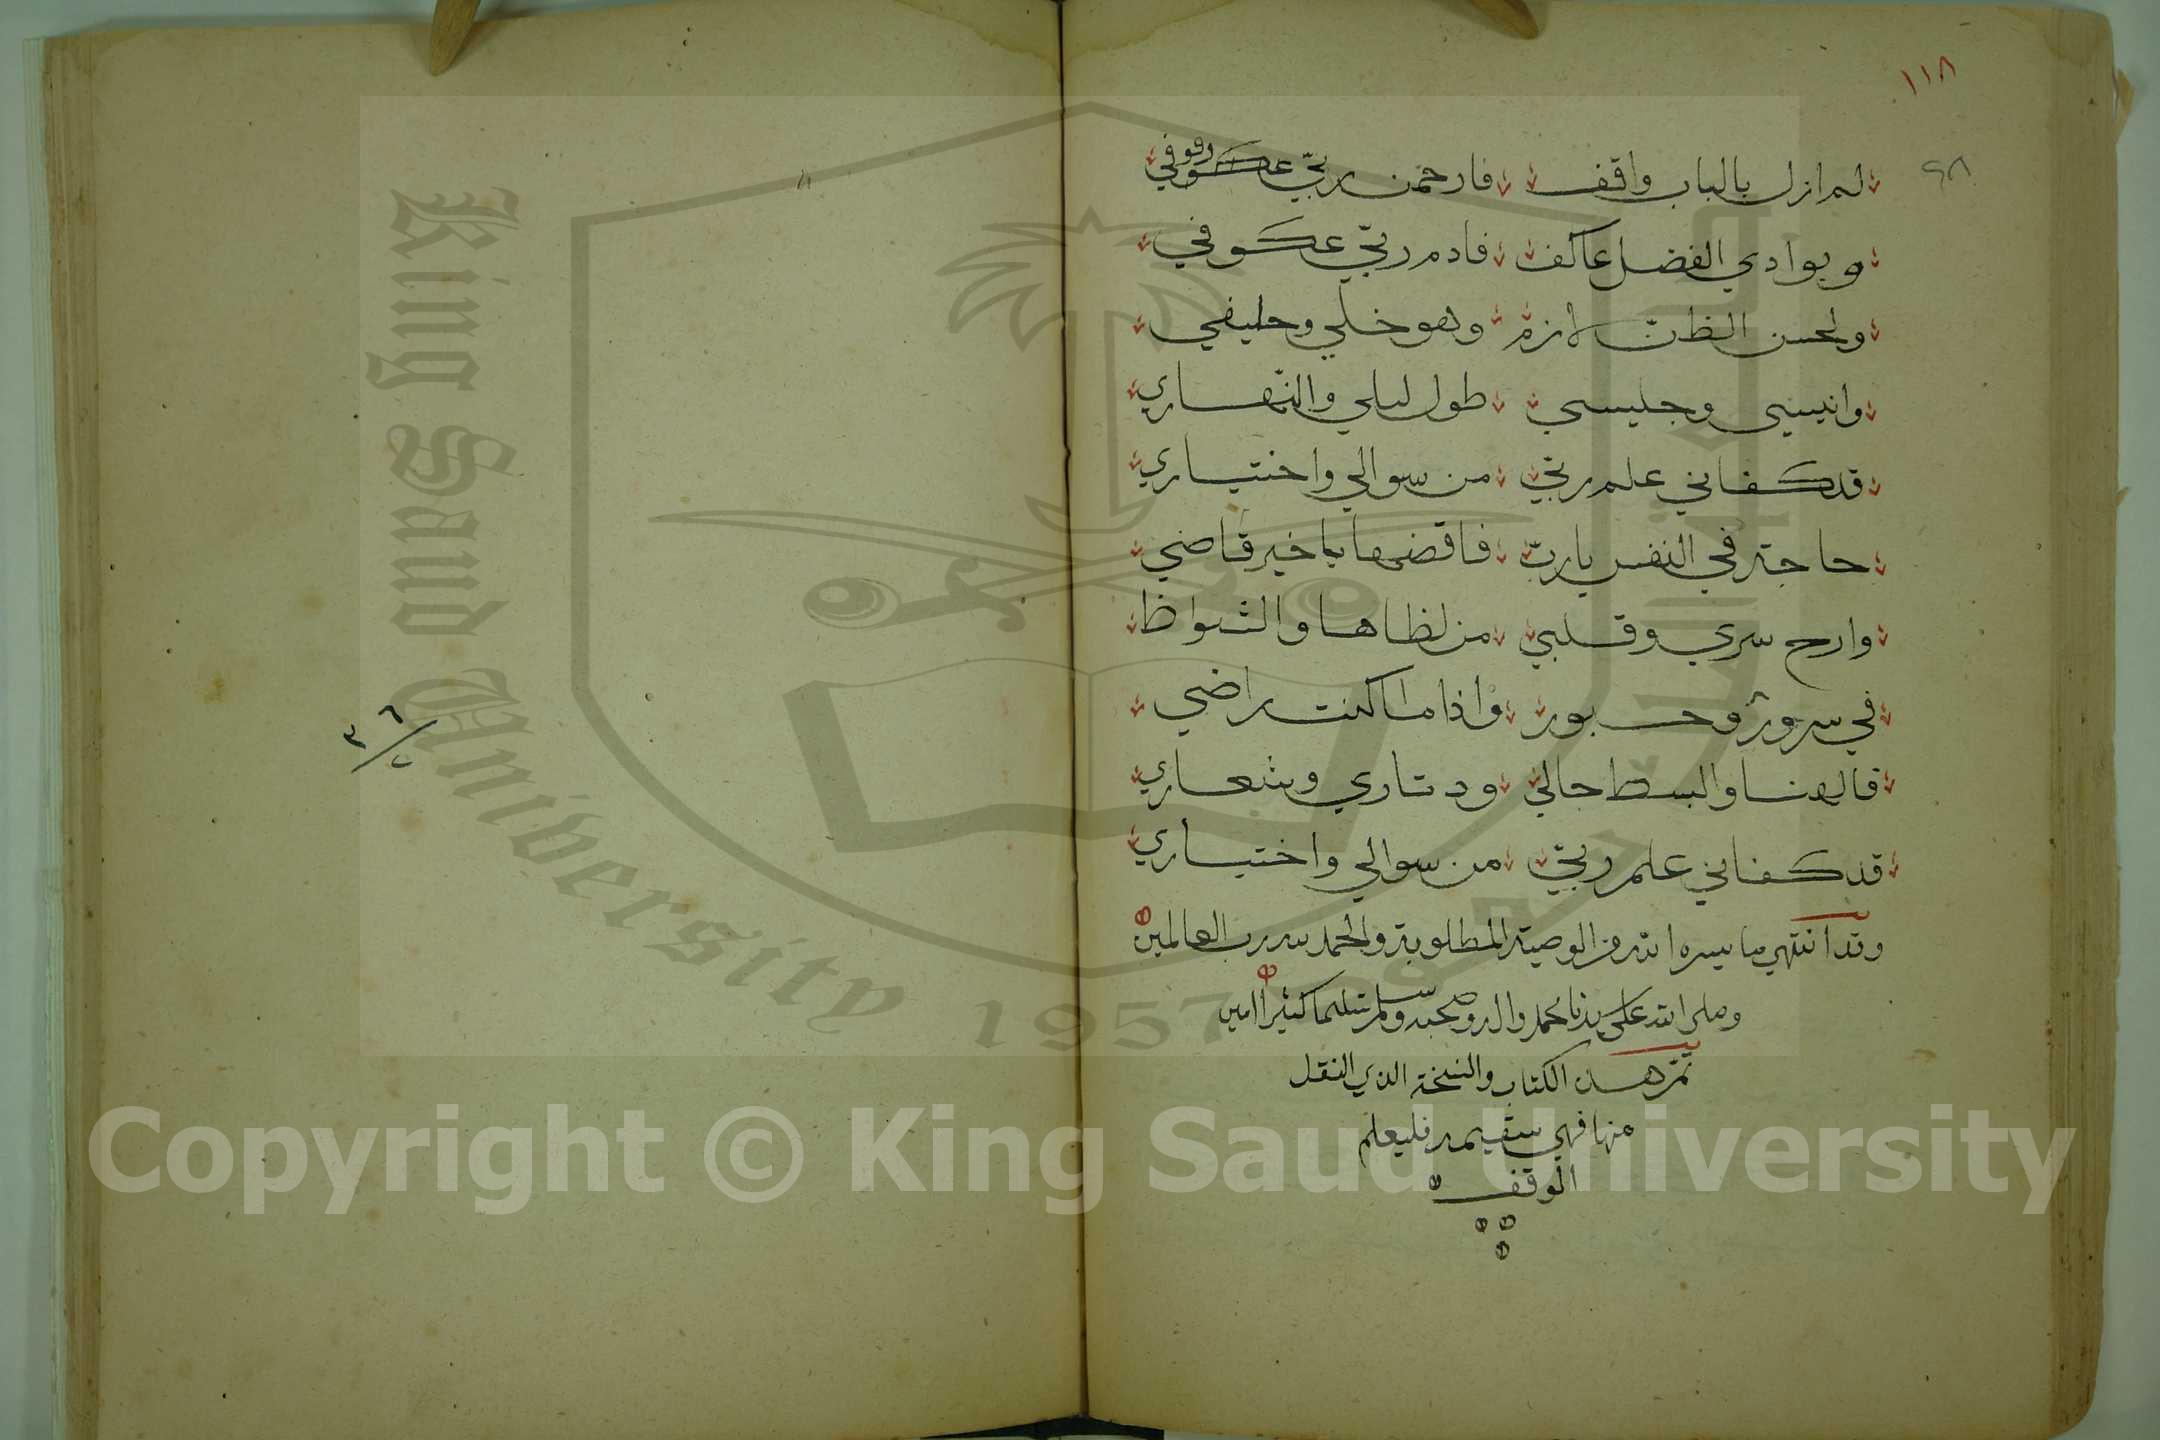 ١١٨
٩٨
لم ازل بالباب واقف فارحمن ربي عكوفي وقوفي
وبوادي الفضل عاكف فادم ربي عكوفي
ولحسن الظن لازم وهو خلي وحليفي
وانيسي وجليسي طول ليلي والنهاري
قد كفاني علم ربي من سوالي واختياري
حاجة في النفس يارب فاقضها يا خير قاضي
وارح سري وقلبي من لظاها والشواظ
في سرور وحبور واذا ما كنت راضي
فالهنا والبسط حالي ودثاري وشعاري
قد كفاني علم ربي من سوالي واختياري
وقد انتهي ما يسره الله من الوصية المطلوبة والحمد لله رب العالمين
وصلى الله على سيدنا محمد واله وصحبه وسلم تسليما كثيرا امين
تم هذا الكتاب والنسخة الذي النقل
منها فهي سقيمه فليعلم
الوقف
King Saud University
1957
Copyright © King Saud University